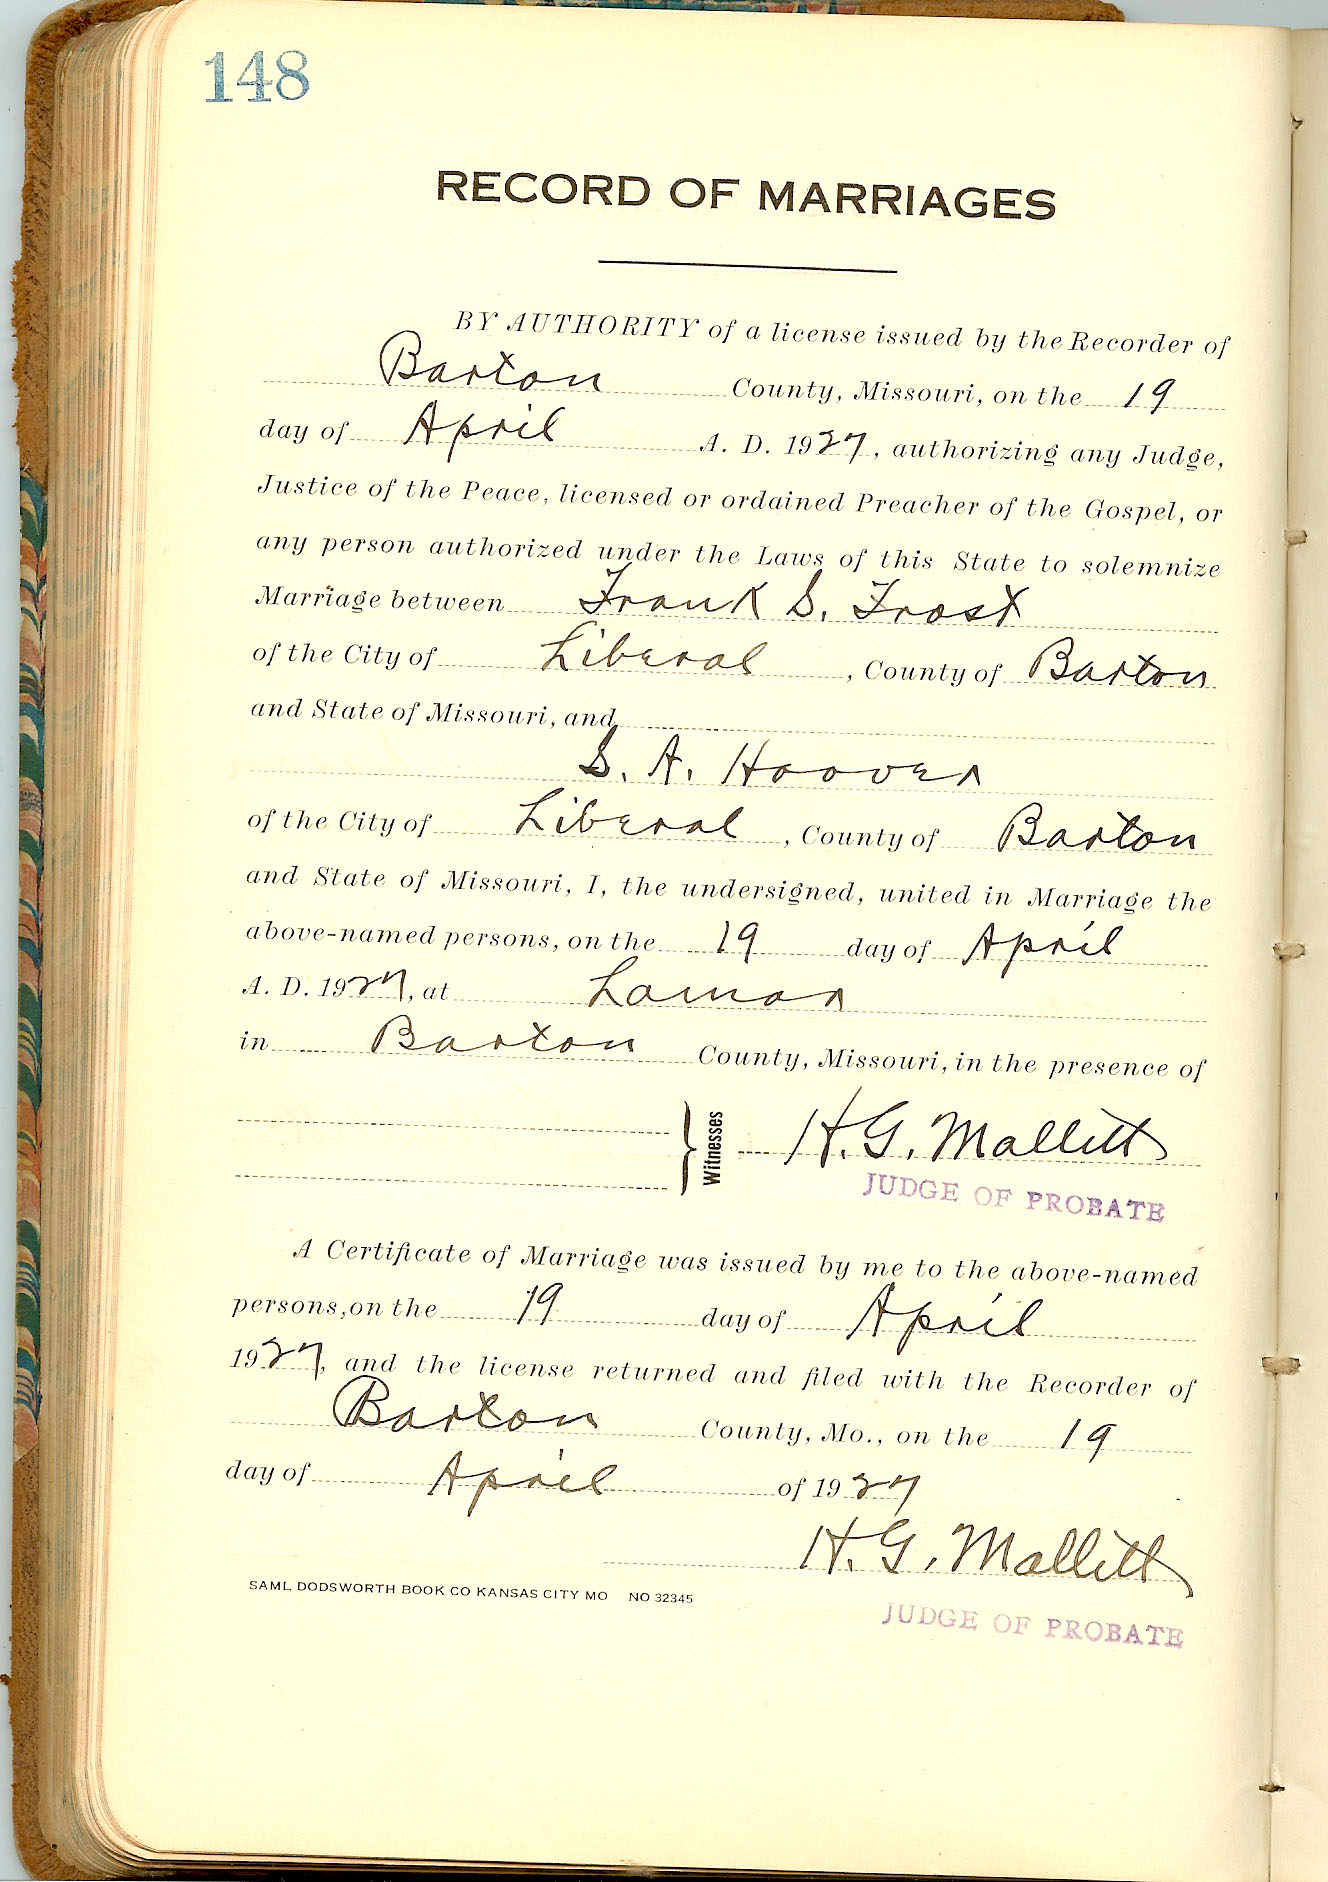 148
RECORD OF MARRIAGES
BY AUTHORITY of a license issued by the Recorder of
Barton County, Missouri, on the 19
day of April A. D. 1927, authorizing any Judge,
Justice of the Peace, licensed or ordained Preacher of the Gospel, or
any person authorized under the Laws of this State to solemnize
Marriage between Frank S. Frost
of the City of Liberal, County of Barton
and State of Missouri, and
S. A. Hoover
of the City of Liberal, County of Barton
and State of Missouri, I, the undersigned, united in Marriage the
above-named persons, on the 19 day of April
A. D. 1927, at Lamar
in Barton County, Missouri, in the presence of
Witnesses H. G. Mallitt
JUDGE OF PROBATE
A Certificate of Marriage was issued by me to the above-named
persons, on the 19 day of April
1927, and the license returned and filed with the Recorder of
Barton County, Mo., on the 19
day of April of 1927
H. G. Mallitt
SAML DODSWORTH BOOK CO KANSAS CITY MO NO 32345
JUDGE OF PROBATE